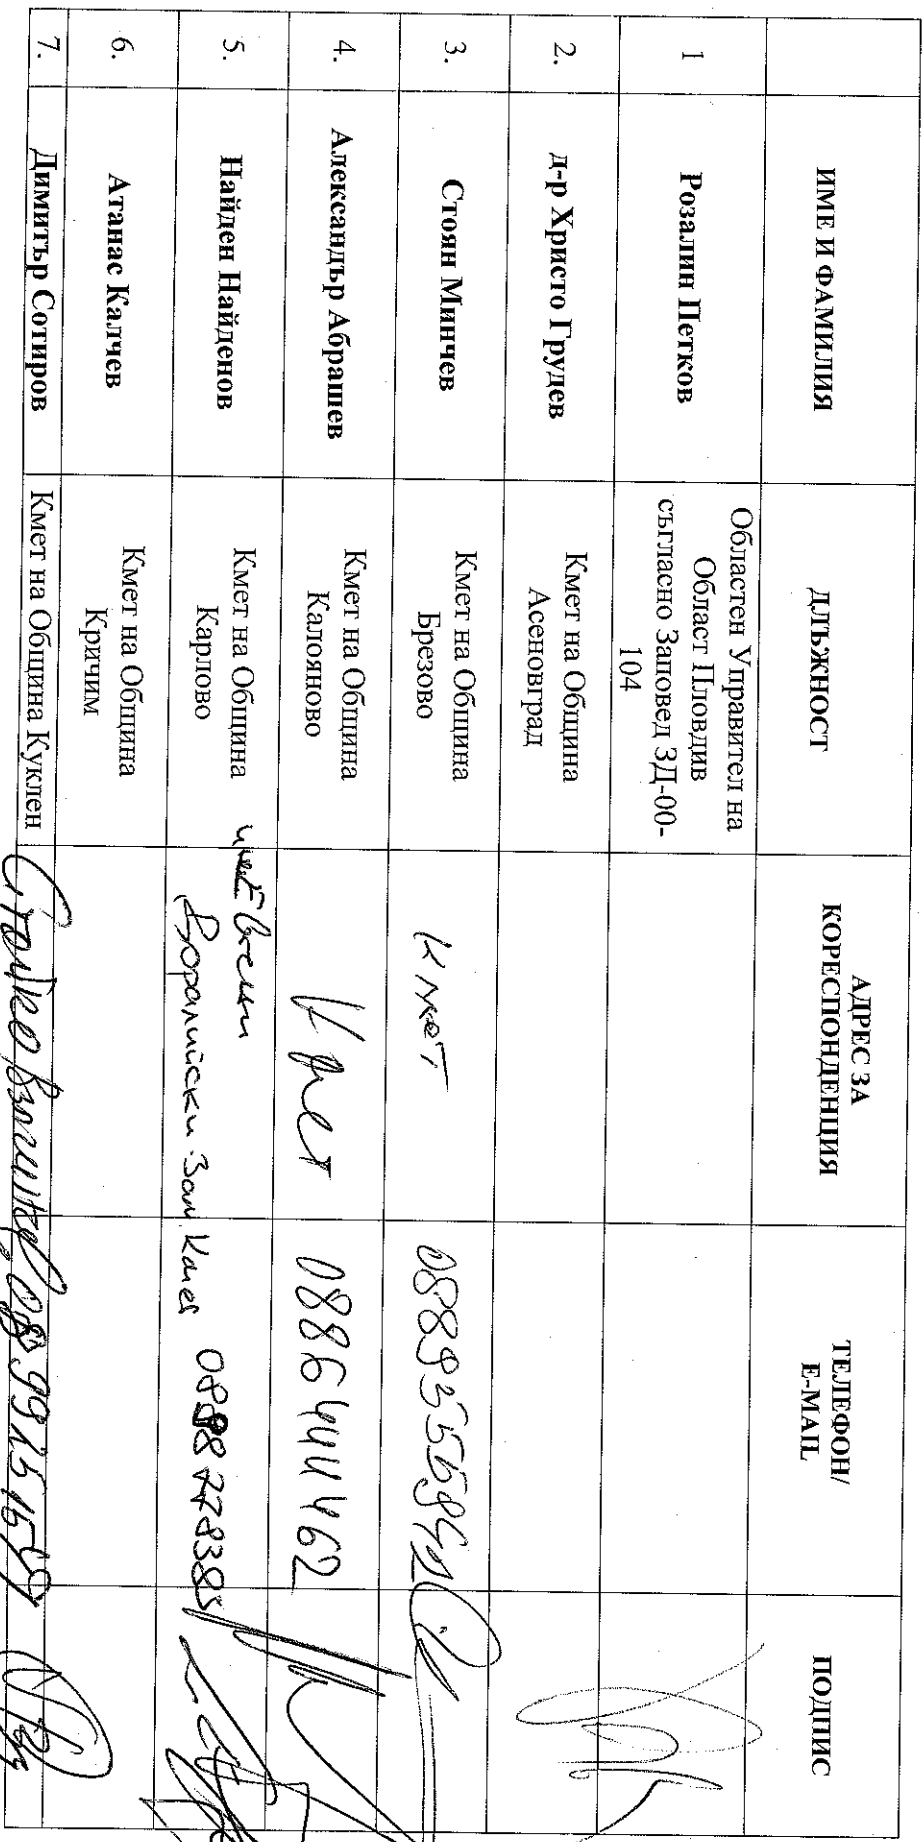 ИМЕ И ФАМИЛИЯ
ДЛЪЖНОСТ
АДРЕС ЗА
КОРЕСПОНДЕНЦИЯ
ТЕЛЕФОН/
E-MAIL
ПОДПИС
1
Розалин Петков
Областен Управител на
Област Пловдив
съгласно Заповед ЗД-00-
104
2.
д-р Христо Грудев
Кмет на Община
Асеновград
3.
Стоян Минчев
Кмет на Община
Брезово
Кмет
4.
Александър Абрашев
Кмет на Община
Калояново
Кмет
0886444462
5.
Найден Найденов
Кмет на Община
Карлово
Зам Кмет
6.
Атанас Калчев
Кмет на Община
Кричим
7.
Димитър Сотиров
Кмет на Община Куклен